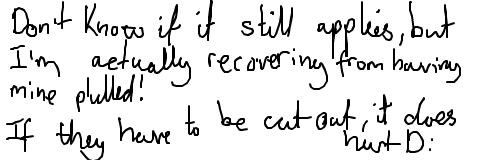 Don't Know if it still applies, but
I'm actually recovering from having
mine plulled!
If they have to be cut out, it does
hurt D: